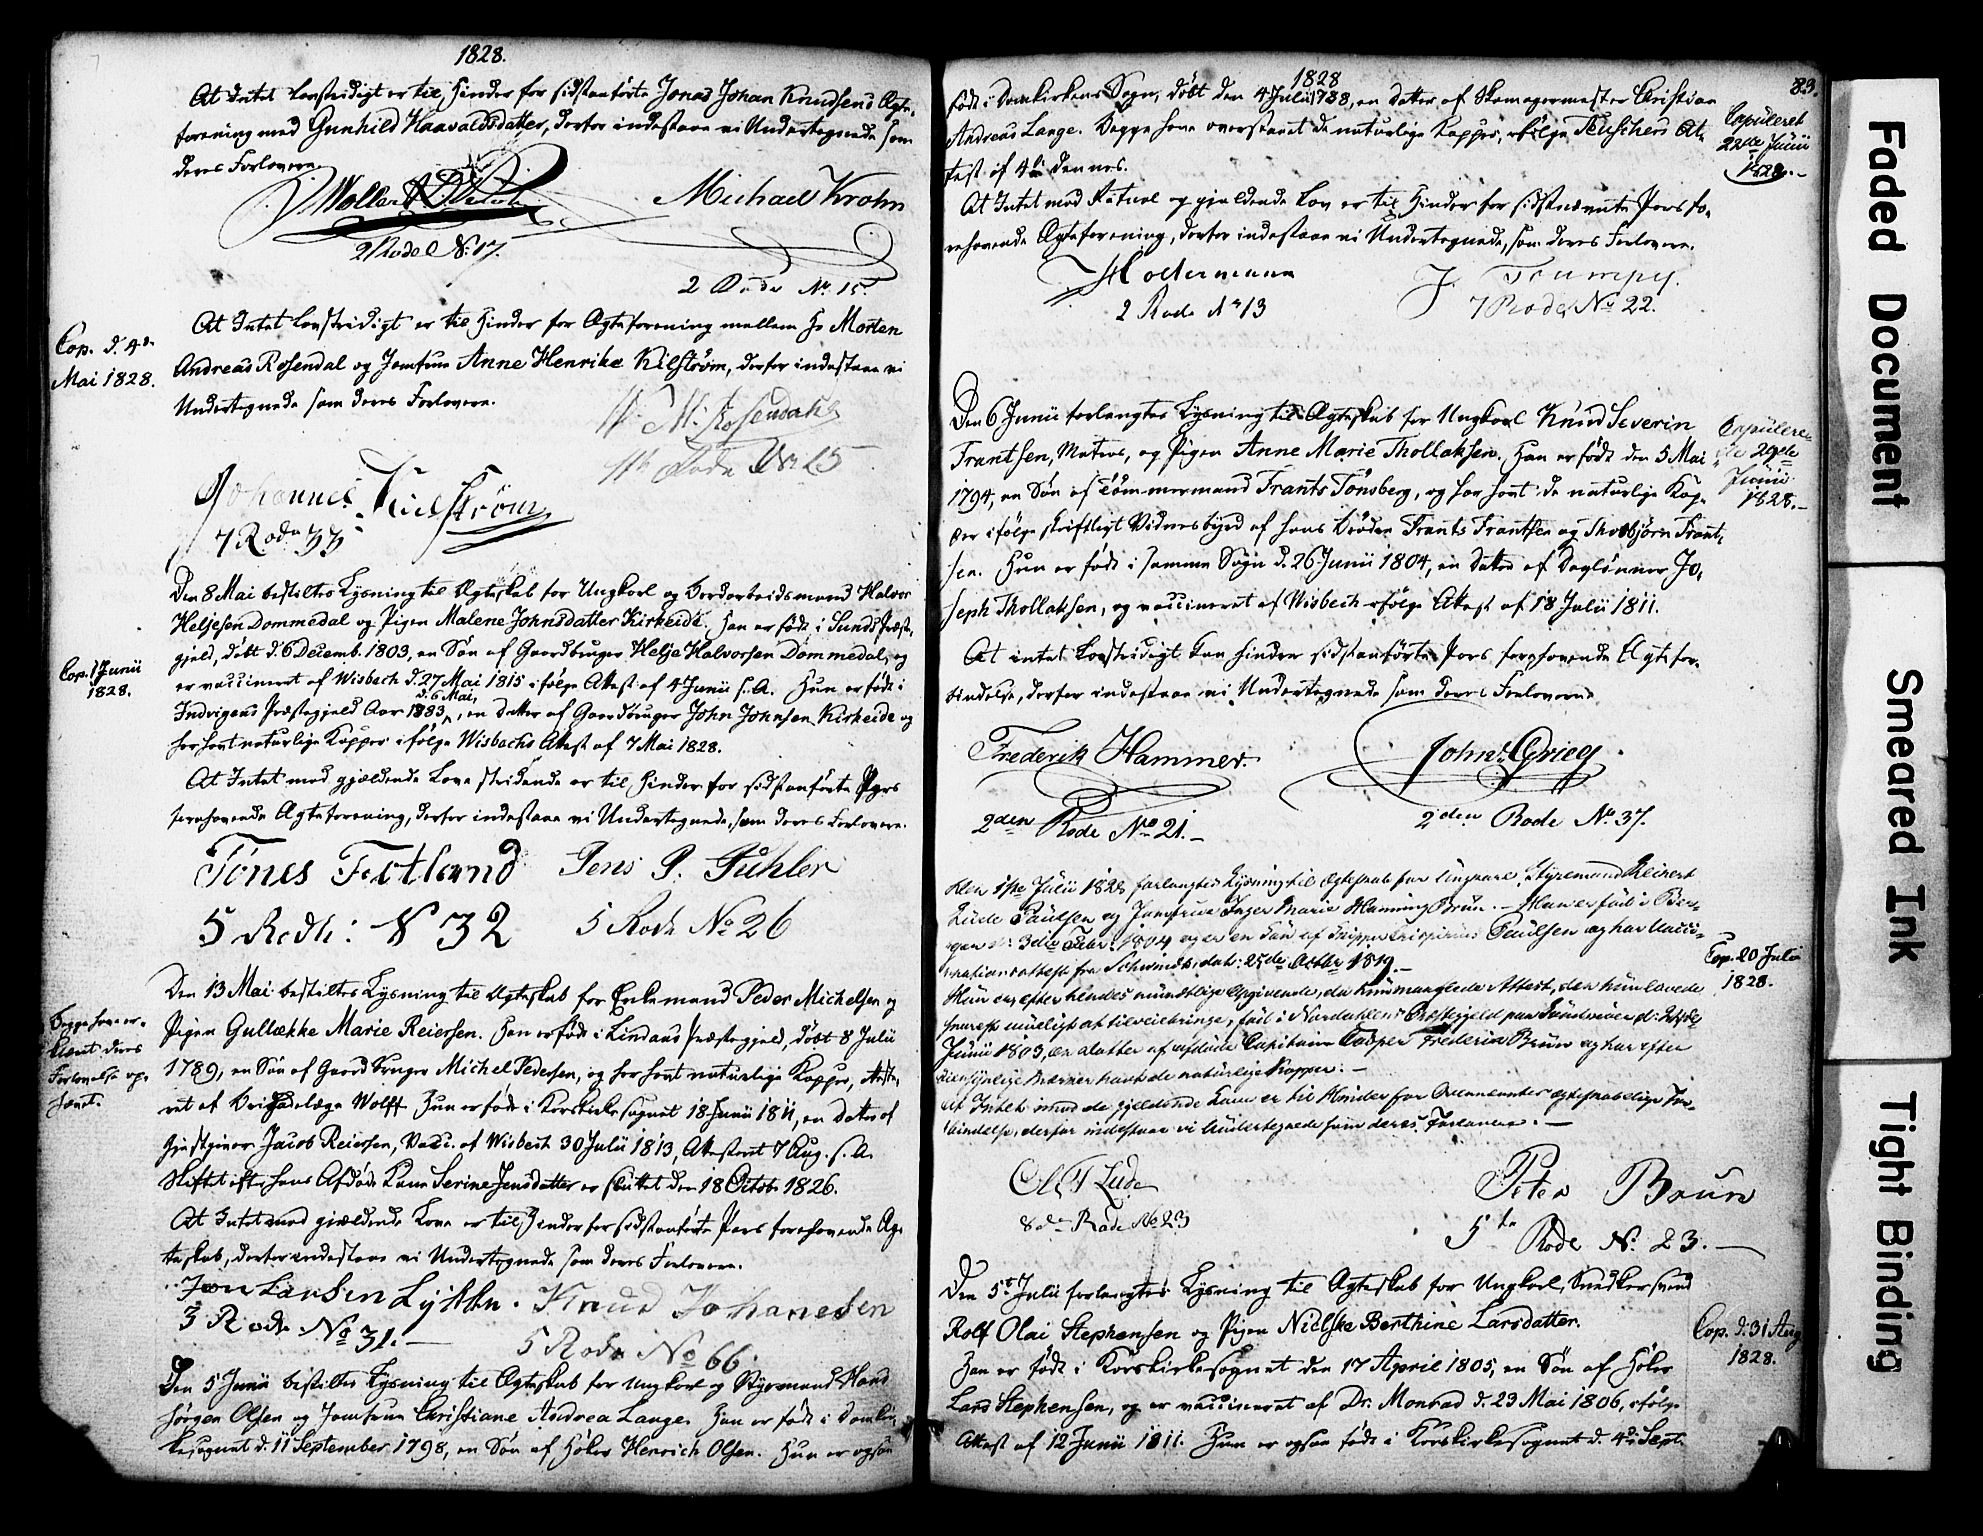 1828.
At Intet lovstridigt er til Hinder for sidstanførte Jonas Johan Knudsens Ægte-
forening med Gunhild Haavaldsdatter, derfor indestaae vi Undertegnede som
deres Forlovere.
Michael Krohn
2 Rode N: 17.
2 Rode No 15.
Cop. d. 4de
Mai 1828.
At Intet lovstridigt er til Hinder for Ægteforening mellem Hr Morten
Andreas Rosendal og Jomfrue Anne Henrike Kilstrøm, derfor indestaae vi
Undertegnede som deres Forlovere.
M. Rosendahl
Rode No 25
Johannes Kielstrøm
7 Rode 33
Den 8 Mai bestiltes Lysning til Ægteskab for Ungkarl og Bordarbeidsmand Halvor
Heljesen Dommedal og Pigen Malene Johnsdatter Kirkeide. Han er født i Sunds Præste-
gjeld, døbt d. 6 Decemb. 1803, en Søn af Gaardbruger Helje Halvorsen Dommedal, og
er vaccineret af Wisbech d. 27 Mai 1815 ifølge Attest af 4 Junii s. A. Hun er født i
Cop. 1 Junii
1828.
d. 6 Mai,
Indvigens Præstegjeld Aar 1883, en Datter af Gaardbruger John Johnsen Kirkeide og
har havt naturlige Kopper ifølge Wisbechs Attest af 7 Mai 1828.
At Intet mod gjældende Love stridende er til Hinder for sidstanførte Pars
forehavende Ægteforening, derfor indestaae vi Undertegnede, som deres Forlovere.
Tönes Fotland Jens P. Pühler
5 Rode: N 32 5 Rode No 26
Den 13 Mai bestiltes Lysning til Ægteskab for Enkemand Peder Michelsen og
Pigen Gullække Marie Reiersen. Han er født i Lindaas Præstegjeld, døbt 8 Julii
1789, en Søn af Gaardbruger Michel Pedersen, og har havt naturlige Kopper, Atte-
ret af Brigadelæge Wolff. Hun er født i Korskirkesognet 18 Junii 1811, en Datter af
Gjestgiver Jacob Reiersen, Vacc. af Wisbech 30 Julii 1813, Attesteret 7 Aug. s. A.
Skiftet efter hans Afdøde Kone Serine Jensdatter er sluttet den 18 Octobr 1826.
Begge have er-
klæret deres
Forlovelse op-
hævet.
At Intet mod gjældende Love er til Hinder for sidstanførte Pars forehavende Æg-
teskab, derfor indestaae vi Undertegnede som deres Forlovere.
Knud Johanesen
3 Rode No 31.
5 Rode No 66.
Den 5 Junii bestiltes Lysning til Ægteskab for Ungkarl og Styrmand Hans
Jørgen Olsen og Jomfrue Christiane Andrea Lange. Han er født i Domkir-
kesognet d. 11 September 1798, en Søn af Høker Henrich Olsen. Hun er ogsaa
1828
83.
født i Domkirkens Sogn, døbt den 4 Julii 1788, en Datter af Skomagermester Christian
Andreas Lange. Begge have overstaaet de naturlige Kopper, ifølge Büschers At-
test af 4de dennes.
Copuleret
22de Junii
1828.-
At Intet mod Ritual og gjeldende Lov er til Hinder for sidstnævnte Pars fo-
rehavende Ægteforening, derfor indestaae vi Undertegnede, som deres Forlovere.
Holtermann J. Trumpy.
2 Rode No 13 7 Rode No 22.
Den 6 Junii forlangtes Lysning til Ægteskab for Ungkarl Knud Severin
Frantsen, Matros, og Pigen Anne Marie Thollaksen. Han er født den 5 Mai
1794, en Søn af Tømmermand Frants Tønsberg, og har havt de naturlige Kop-
per ifølge skriftligt Vidnesbyrd af hans Brødre Frants Frantsen og Thorbjørn Frant-
sen. Hun er født i samme Sogn d. 26 Junii 1804, en Datter af Daglønner Jo-
seph Thollaksen, og vaccineret af Wisbech ifølge Attest af 18 Julii 1811.
Copuleret
29de
Junii
1828.-
At intet Lovstridigt kan hindre sidstanførte Pars forehavende Ægtefor-
bindelse, derfor indestaae vi Undertegnede som deres Forlovere.
Frederik Hammer. John Grieg
2den Rode No 21.- 2den Rode No 37.
Den 1ste Julii 1828 forlangtes Lysning til Ægteskab for Ungkarl Styremand Reinert
Lude Paulsen og Jomfrue Inger Marie Hanning Brun.- Han er født i Ber-
gen d: 3die Febr: 1804 og er en Søn af Skipper Crispinius Paulsen og har Vacci-
nationsattest fra Schwindt, dat: 25de Octbr 1819.-
Hun er, efter hendes mundtlige Opgivende, da hun manglede Attest, den hun lovede
snarest mueligt at tilveiebringe, født i Nordahlens Præstegjeld
Junii 1803, en Datter af afdøde Capitain Casper Frederik Brun og har efter
tilsynlige Mærker havt de naturlige Kopper.-
Cop. 20 Julii
1828.
At Intet imod de gjeldende Love er til Hinder for Ovennævntes ægteskabelige For-
bindelse, derfor indestaae vi Undertegnede som deres Forlovere.-
Lude Peter Bruun
8de Rode No 23 5te Rode No. 23.-
Den 5t Julii forlangtes Lysning til Ægteskab for Ungkarl, Snedkersvend
Rolf Olai Stephensen og Pigen Nielske Berthine Larsdatter.
Cop. d. 31 Aug
1828.
Han er født i Korskirkesognet den 17 April 1805, en Søn af Høker
Lars Stephensen, og er vaccineret af Dr. Monrad d. 23 Mai 1806, ifølge
Attest af 12 Junii 1811. Hun er ogsaa født i Korskirkesognet d. 4de Sept.
Faded Document
Smeared Ink
Tight Binding